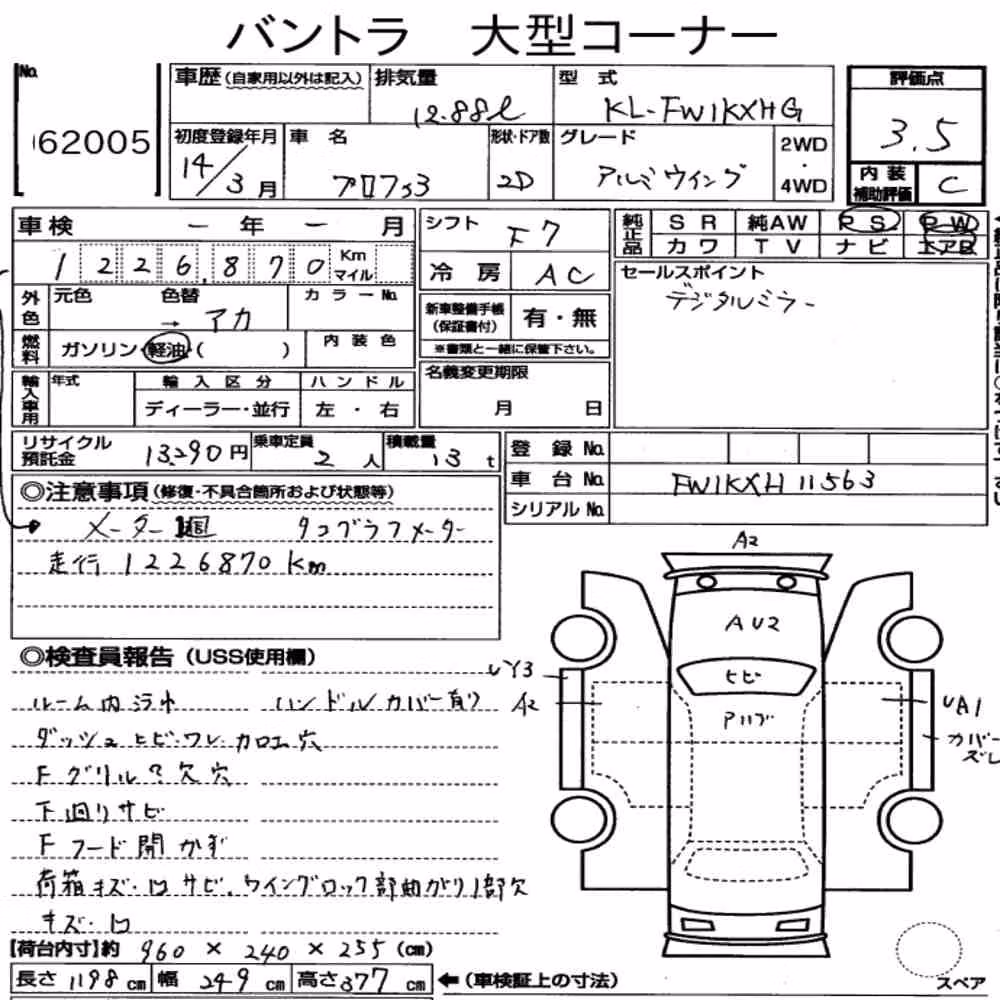 バントラ 大型コーナー
No.
62005
車歴(自家用以外は記入)
排気量
12.88ℓ
型式
KL-FW1KXHG
評価点
3.5
初度登録年月
14/3月
車名
プロフィ3
形状・ドア数
2D
グレード
アルミウイング
2WD・4WD
内装補助評価
C
車検 ー年ー月
シフト
F7
純正品
SR 純AW PS PW
カワ TV ナビ エアB
1226,870 Km マイル
冷房
AC
セールスポイント
デジタルミラー
外色
元色 色替 → アカ
カラーNo.
新車整備手帳(保証書付)
有・無
※書類と一緒に保管下さい。
燃料
ガソリン・軽油・( )
内装色
名義変更期限
月 日
輸入車用
年式
輸入区分
ディーラー・並行
ハンドル
左・右
リサイクル預託金
13,290円
乗車定員
2人
積載量
13t
登録No.
車台No.
FW1KXH11563
シリアルNo.
◎注意事項(修復・不具合箇所および状態等)
メーター1週 タコグラフメーター
走行 1226870Km
◎検査員報告(USS使用欄)
ルーム内汚れ ハンドルカバー有り
ダッシュヒビ・ワレ・カロエ穴
Fグリル 欠穴
下廻りサビ
Fフード開かず
荷箱キズ・凹サビ、ウイングロック部曲がり1部欠
キズ・凹
A2
AU2
ヒビ
UY3
A2
UA1
カバーズレ
スペア
【荷台内寸】約 960×240×255(cm)
長さ1198cm 幅249cm 高さ377cm ←(車検証上の寸法)